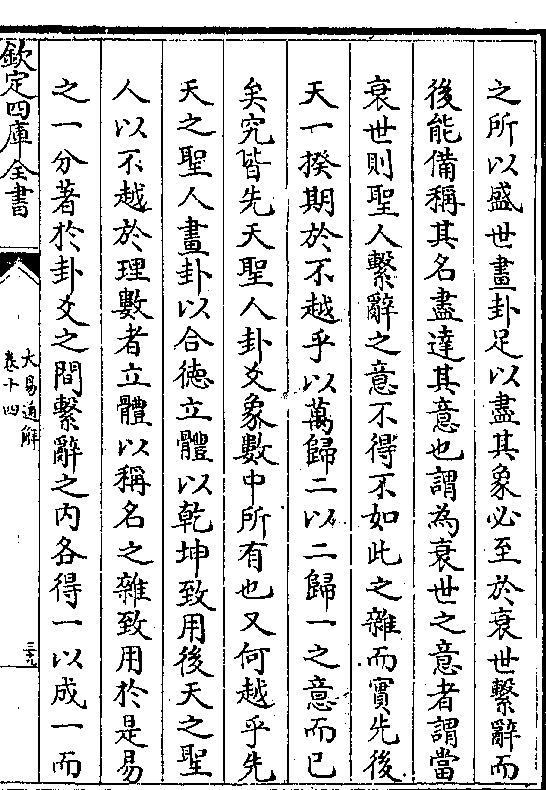 之所以盛世畫卦足以盡其象必至於衰世繫辭而
後能備稱其名盡達其意也謂為衰世之意者謂當
衰世則聖人繫辭之意不得不如此之雜而實先後
天一揆期於不越乎以萬歸二以二歸一之意而已
矣究皆先天聖人卦爻象數中所有也又何越乎先
天之聖人畫卦以合德立體以乾坤致用後天之聖
人以不越於理數者立體以稱名之雜致用於是易
之一分著於卦爻之間繫辭之內各得一以成一而
欽定四庫全書
大易通解
卷十四